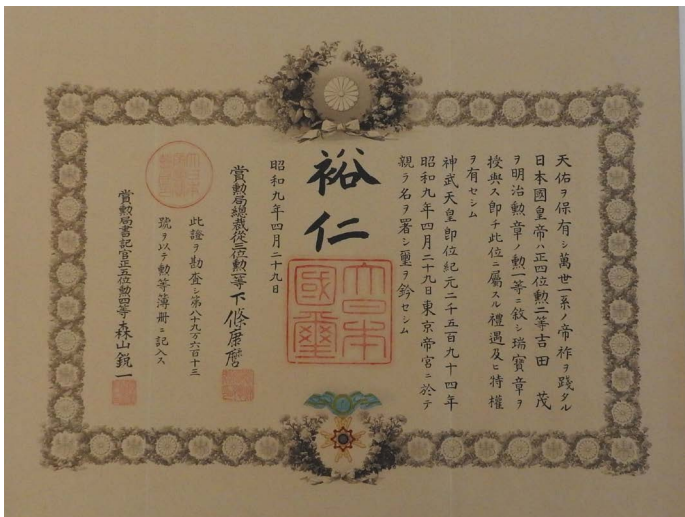 天佑ヲ保有シ萬世一系ノ帝祚ヲ踐タル
日本國皇帝ハ正四位勲二等吉田茂
ヲ明治勲章ノ勲一等ニ敘シ瑞寶章ヲ
授與ス即チ此位ニ屬スル禮遇及ヒ特權
ヲ有セシム
神武天皇即位紀元二千五百九十四年
昭和九年四月二十九日東京帝宮ニ於テ
親ラ名ヲ署シ璽ヲ鈐セシム
裕仁
大日本國璽
昭和九年四月二十九日
賞勲局總裁從三位勲一等下條康麿
此證ヲ勘査シ第八十九万六百十三
號ヲ以テ勲等簿冊ニ記入ス
賞勲局書記官正五位勲四等森山鋭一